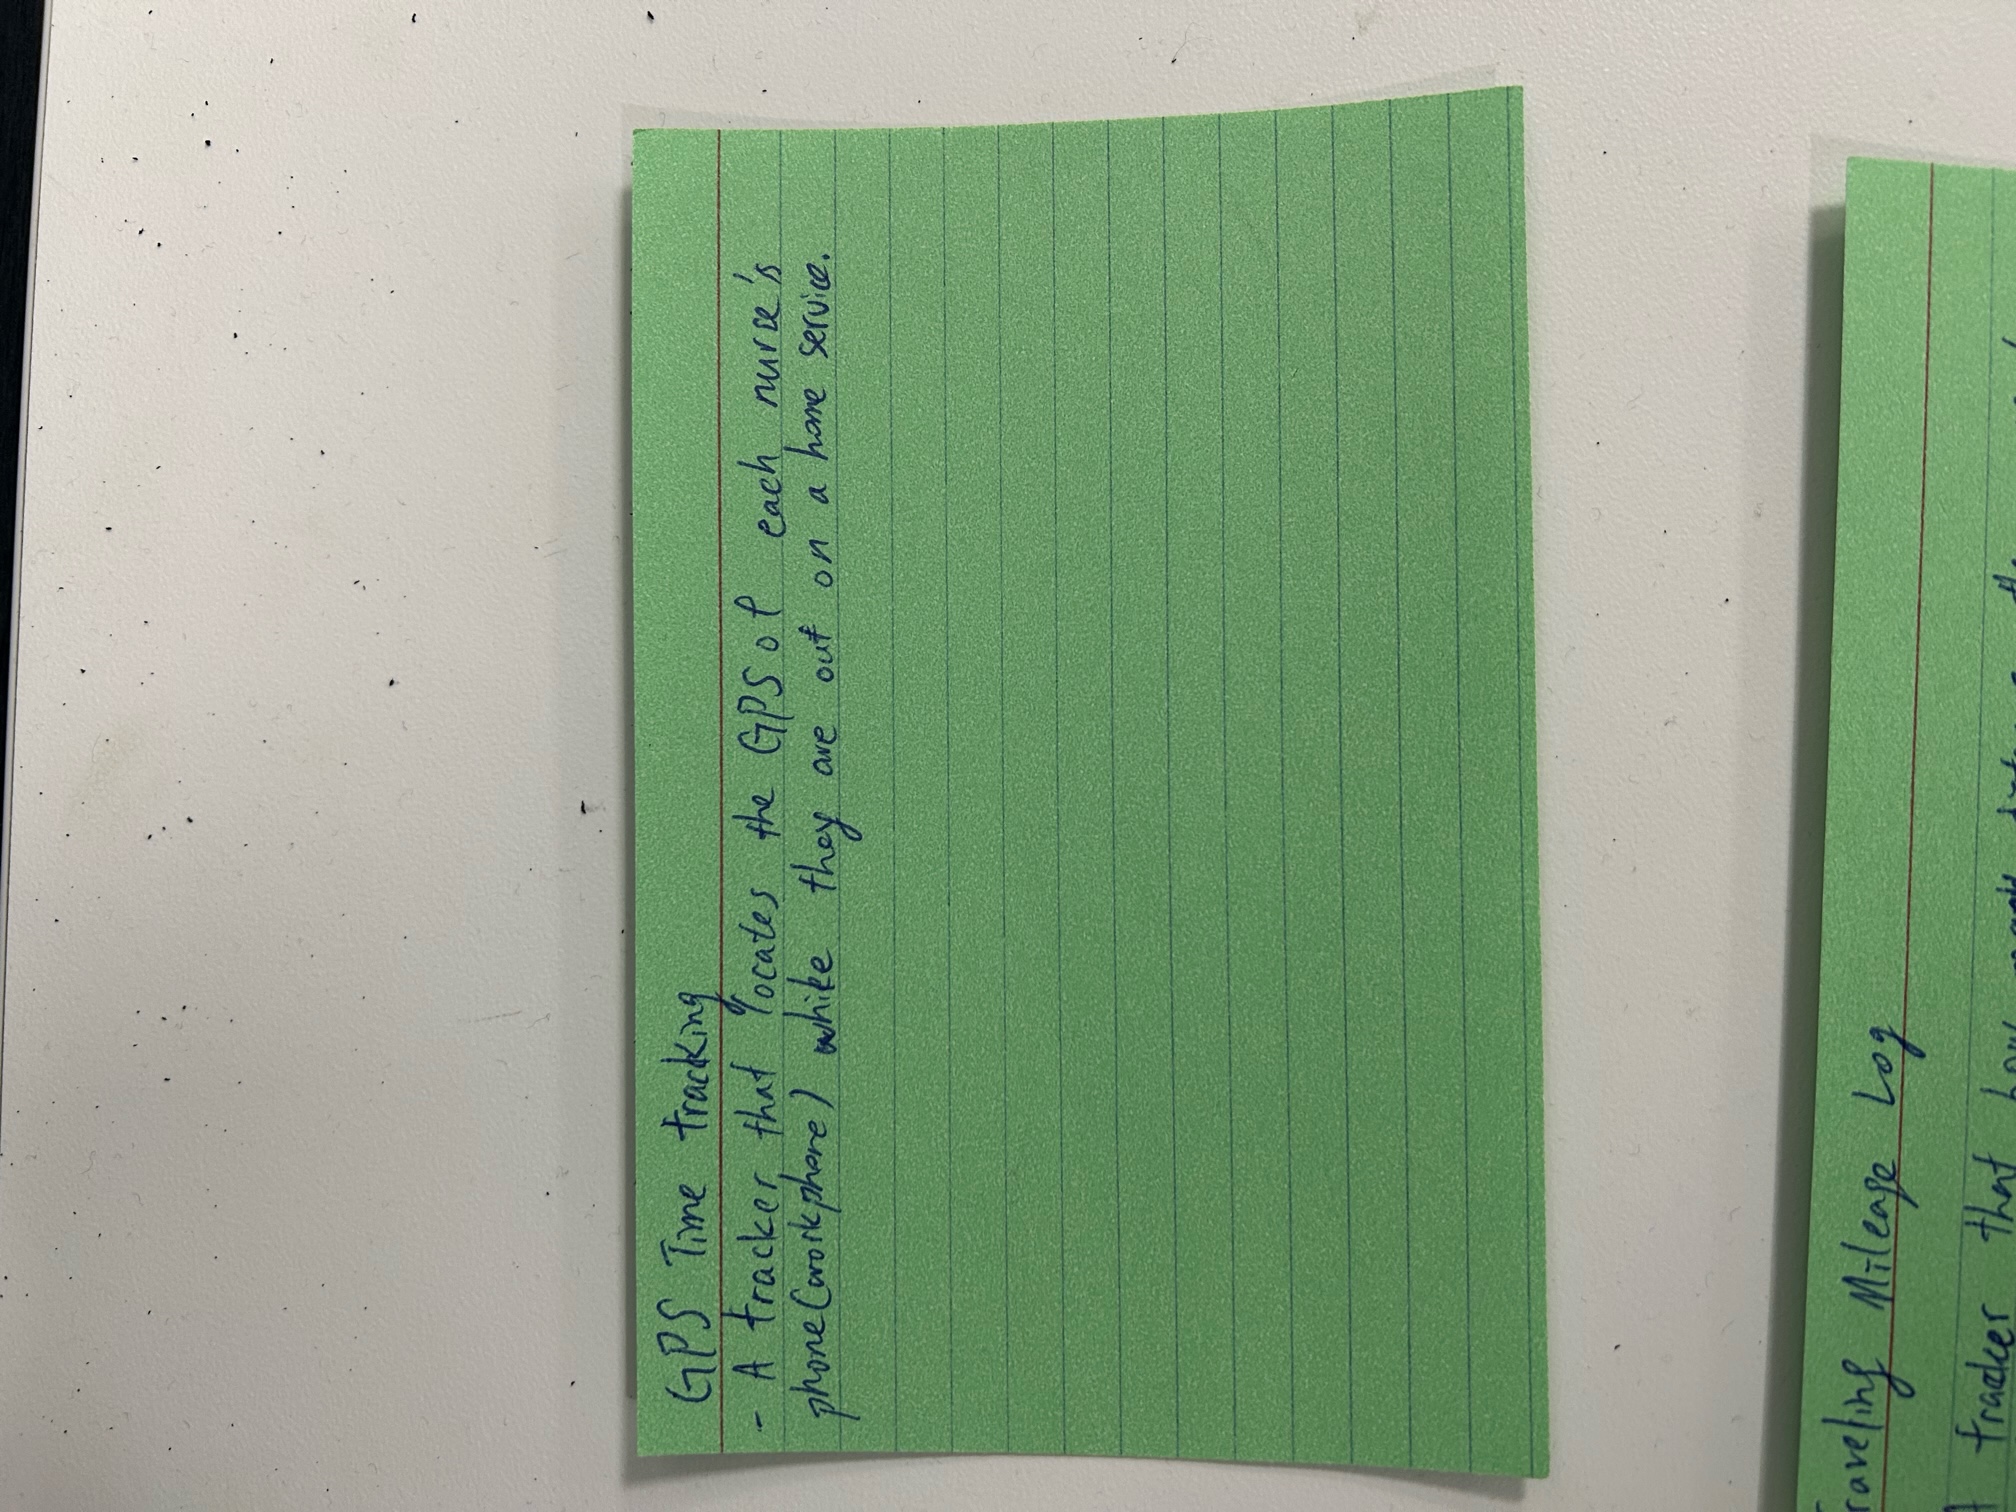 GPS Time tracking
- A tracker that locates the GPS of each nurse's
phone (work phone) while they are out on a home service.
Traveling Mileage Log
A tracker that how much